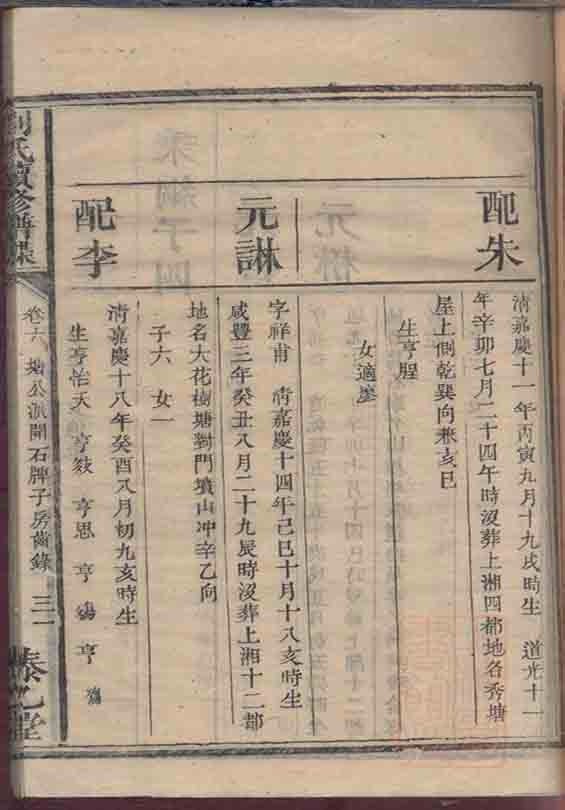 配朱
清嘉慶十一年丙寅九月十九戌時生　道光十一
年辛卯七月二十四午時沒葬上湘四都地名秀塘
屋上側乾巽向兼亥巳
生亨
女適廖
元諃
字祥甫　清嘉慶十四年己巳十月十八亥時生
咸豐三年癸丑八月二十九辰時沒葬上湘十二都
地名大花樹塘對門墳山冲辛乙向
子六　女一
配李
清嘉慶十八年癸酉八月初九亥時生
生亨怡夭　亨　亨思　亨　亨
劉氏續修譜牒
卷六　塘公派開石牌子房齒錄　三一